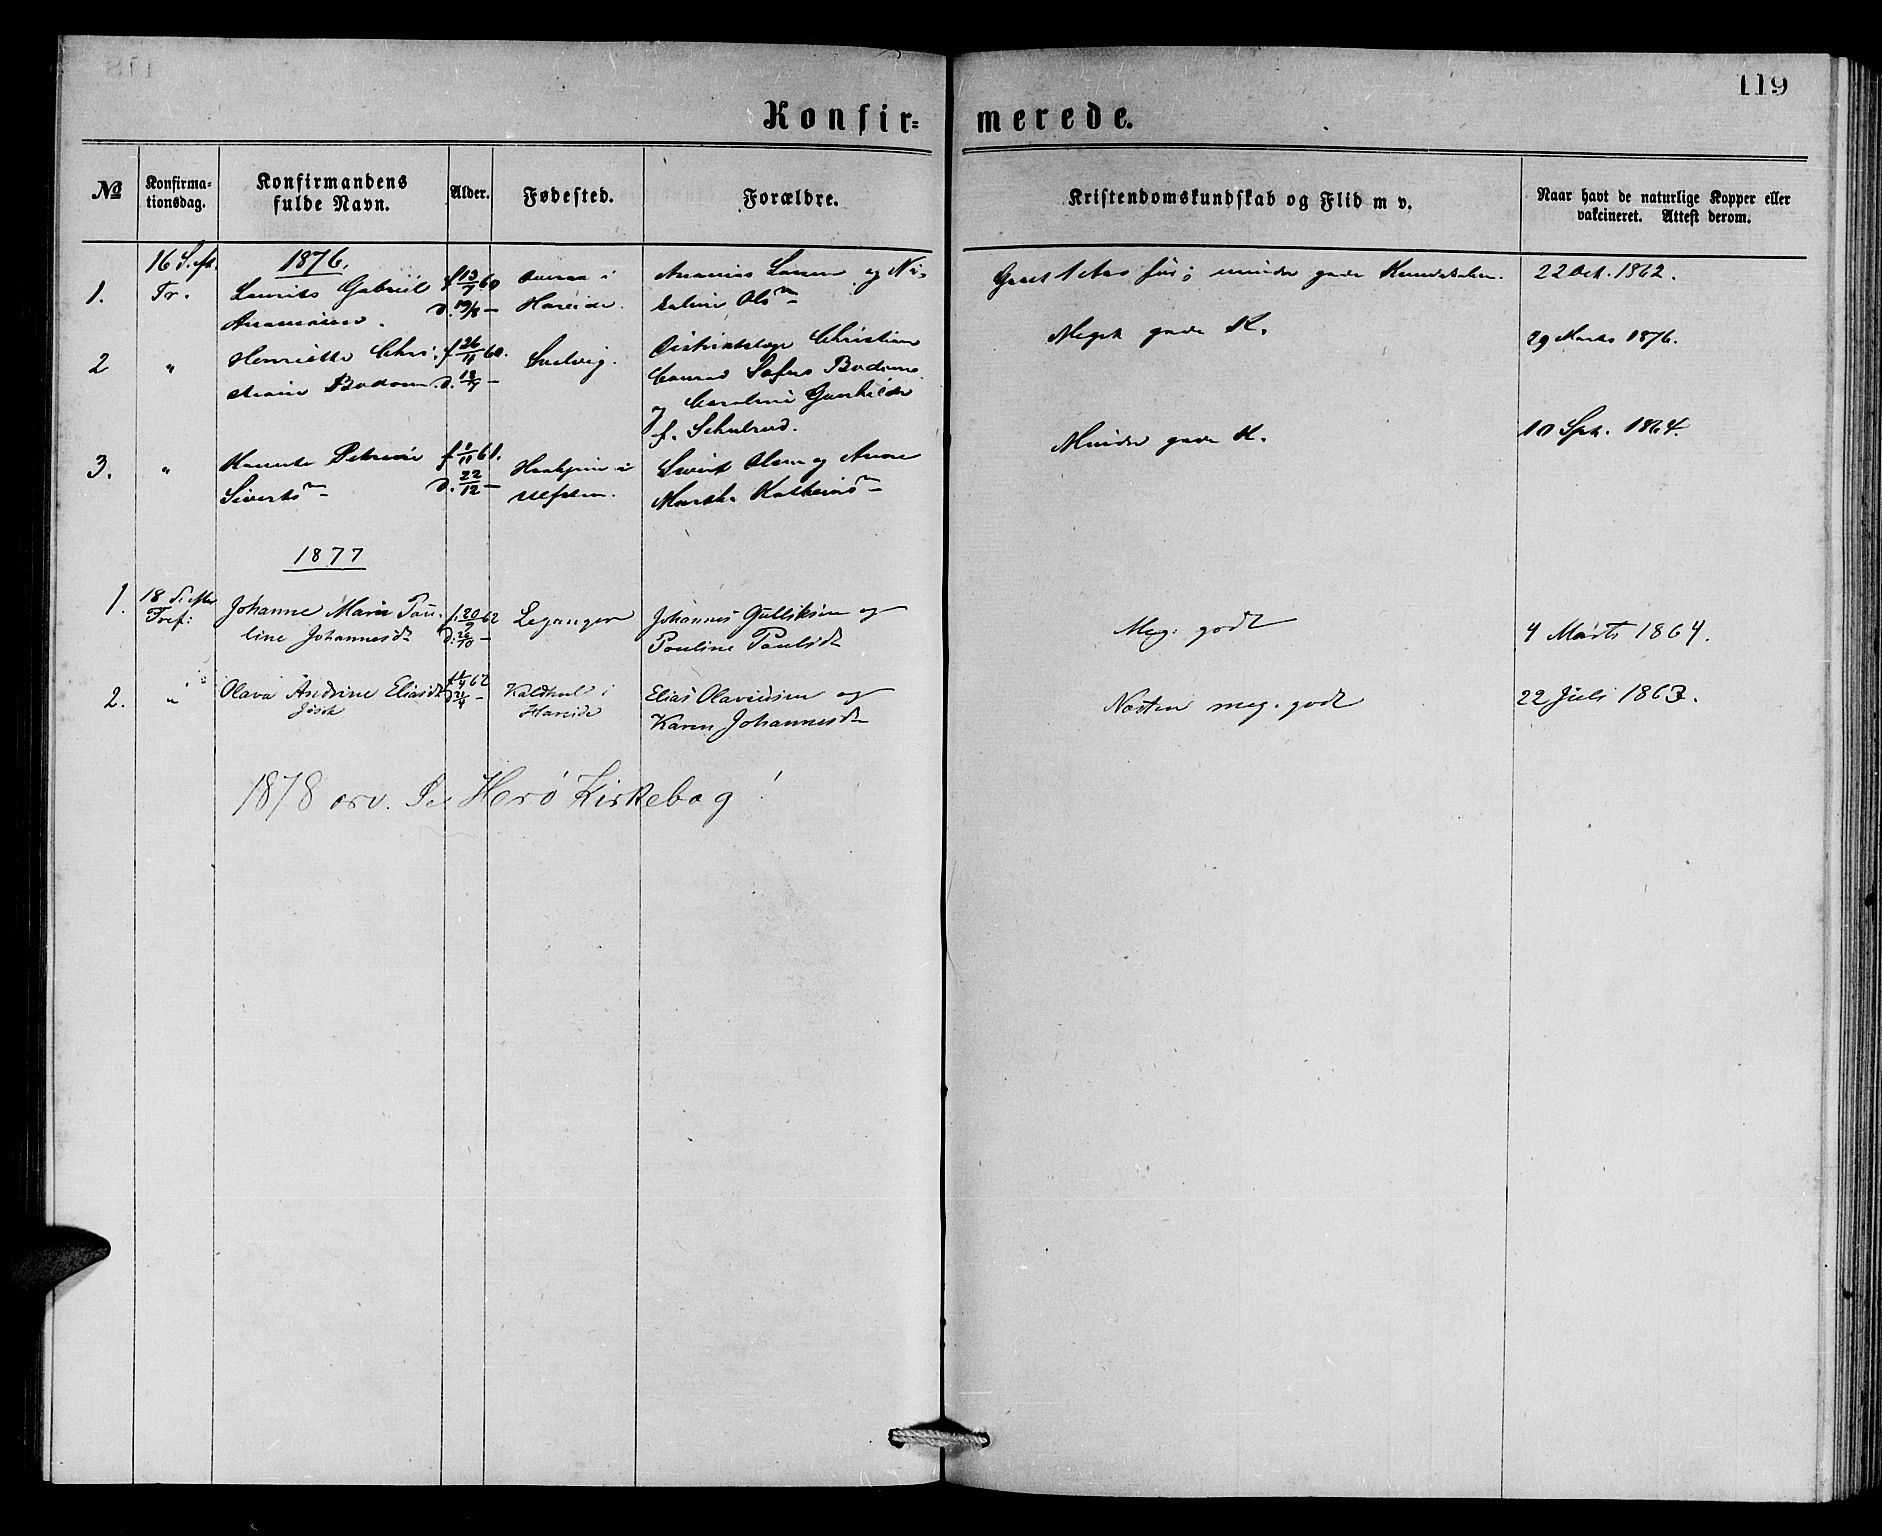 119
Konfir= merede.
No
Konfirma-
tionsdag.
Konfirmandens
fulde Navn.
Alder.
Fødested.
Forældre.
Kristendomskundskab og Flid m v.
Naar havt de naturlige Kopper eller
vakcineret. Attest derom.
1876.
1.
16 S. eft.
Tr.
Laurits Gabriel
Ananiasen.
f 13/7 60
d. 19/8 —
i
Hareide.
Ananias Larsen og Ni-
coline Olsdn
Gaaet 1 Aar før; mindre gode Kundskaber.
22 Oct. 1862.
2
"
Henriette Chri-
stiane Bodom.
f 26/4 60.
d. 18/7 —
Svelvig.
Distriktslæge Christian
Conrad Sofus Bodom
og Caroline Gunhilde
f. Schulrud.
Meget gode K.
29 Marts 1876.
3.
"
Petrine
Sivertsdn
f 1/11 61.
d. 22/12 —
i
Ulfsten.
Sivert Olsen og Anne
Martha Kathrinsdn
Mindre gode K.
10 Spt. 1864.
1877
1.
18 S. efter
Tref:
Johanne Marie Pau-
line Johannesdt
f. 20/9 62
d. 26/10 —
Leganger
Johannes Gulliksen og
Pauline Paulsdt
Meg. godt
4 Marts 1864.
2.
"
Olava Andrine Eliasdt
Jøsok
62
Kaldhol i
Hareide
Elias Olavessen og
Karen Johannesdt
Næsten meg. godt
22 Juli 1863.
1878 osv. Se Herø Kirkebog!